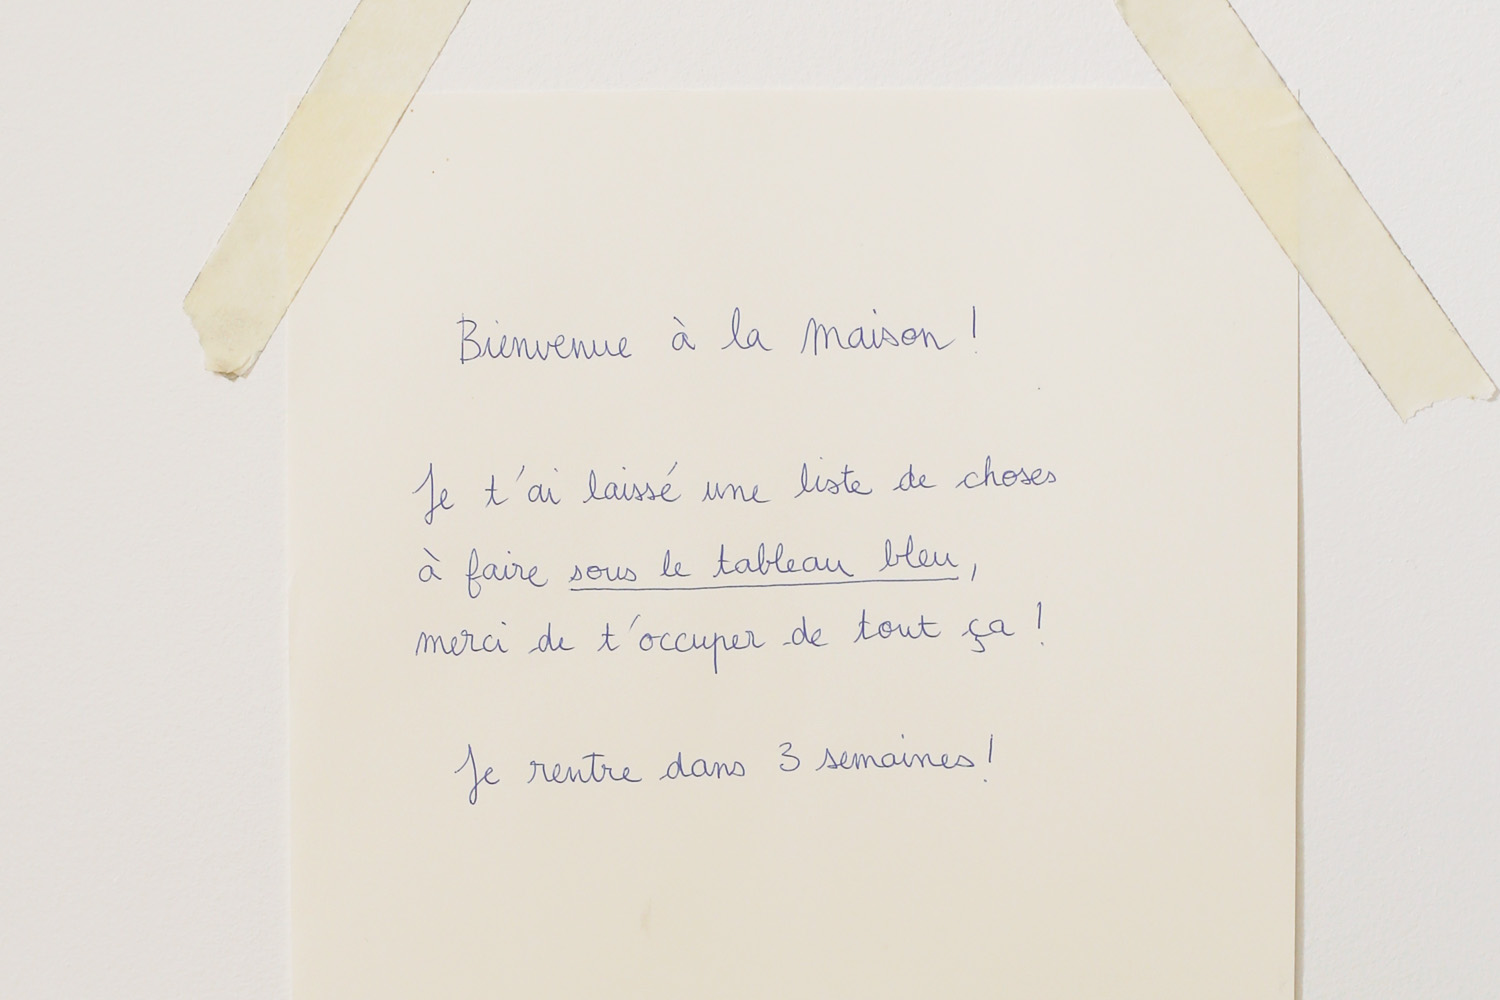 Bienvenue à la maison !
Je t'ai laissé une liste de choses
à faire sous le tableau bleu,
merci de t'occuper de tout ça !
Je rentre dans 3 semaines !